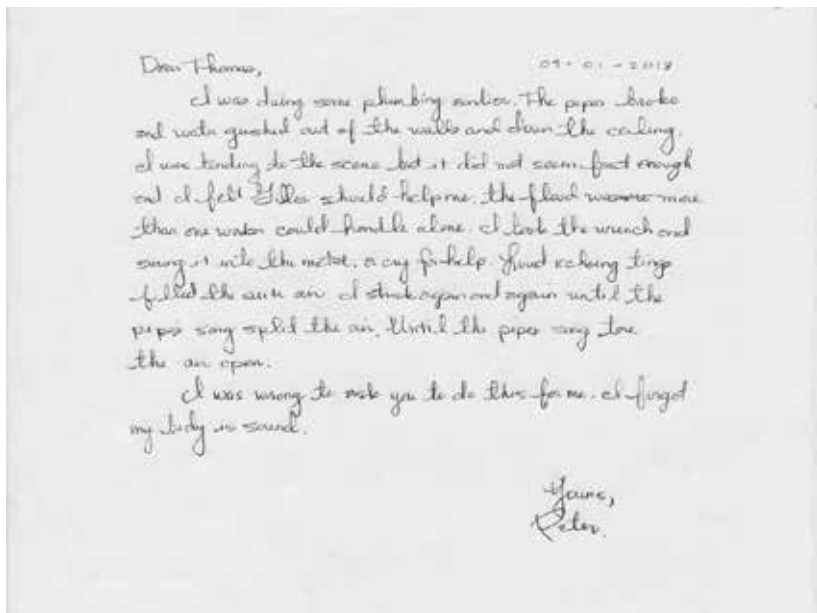 Dear Thomas,
09-01-2018
I was doing some plumbing earlier. The pipes broke
and water gushed out of the walls and down the ceiling.
I was tending to the scene but it did not seem fast enough
and I felt should help me. The flood more
than one worker could handle alone. I took the wrench and
swung it into the metal, a cry for help. Loud echoing
filled the air I struck again and again until the
pipes song split the air. Until the pipes song tore
the air open.
I was wrong to ask you to do this for me. I forgot
my body is sound.
Yours,
Peter.